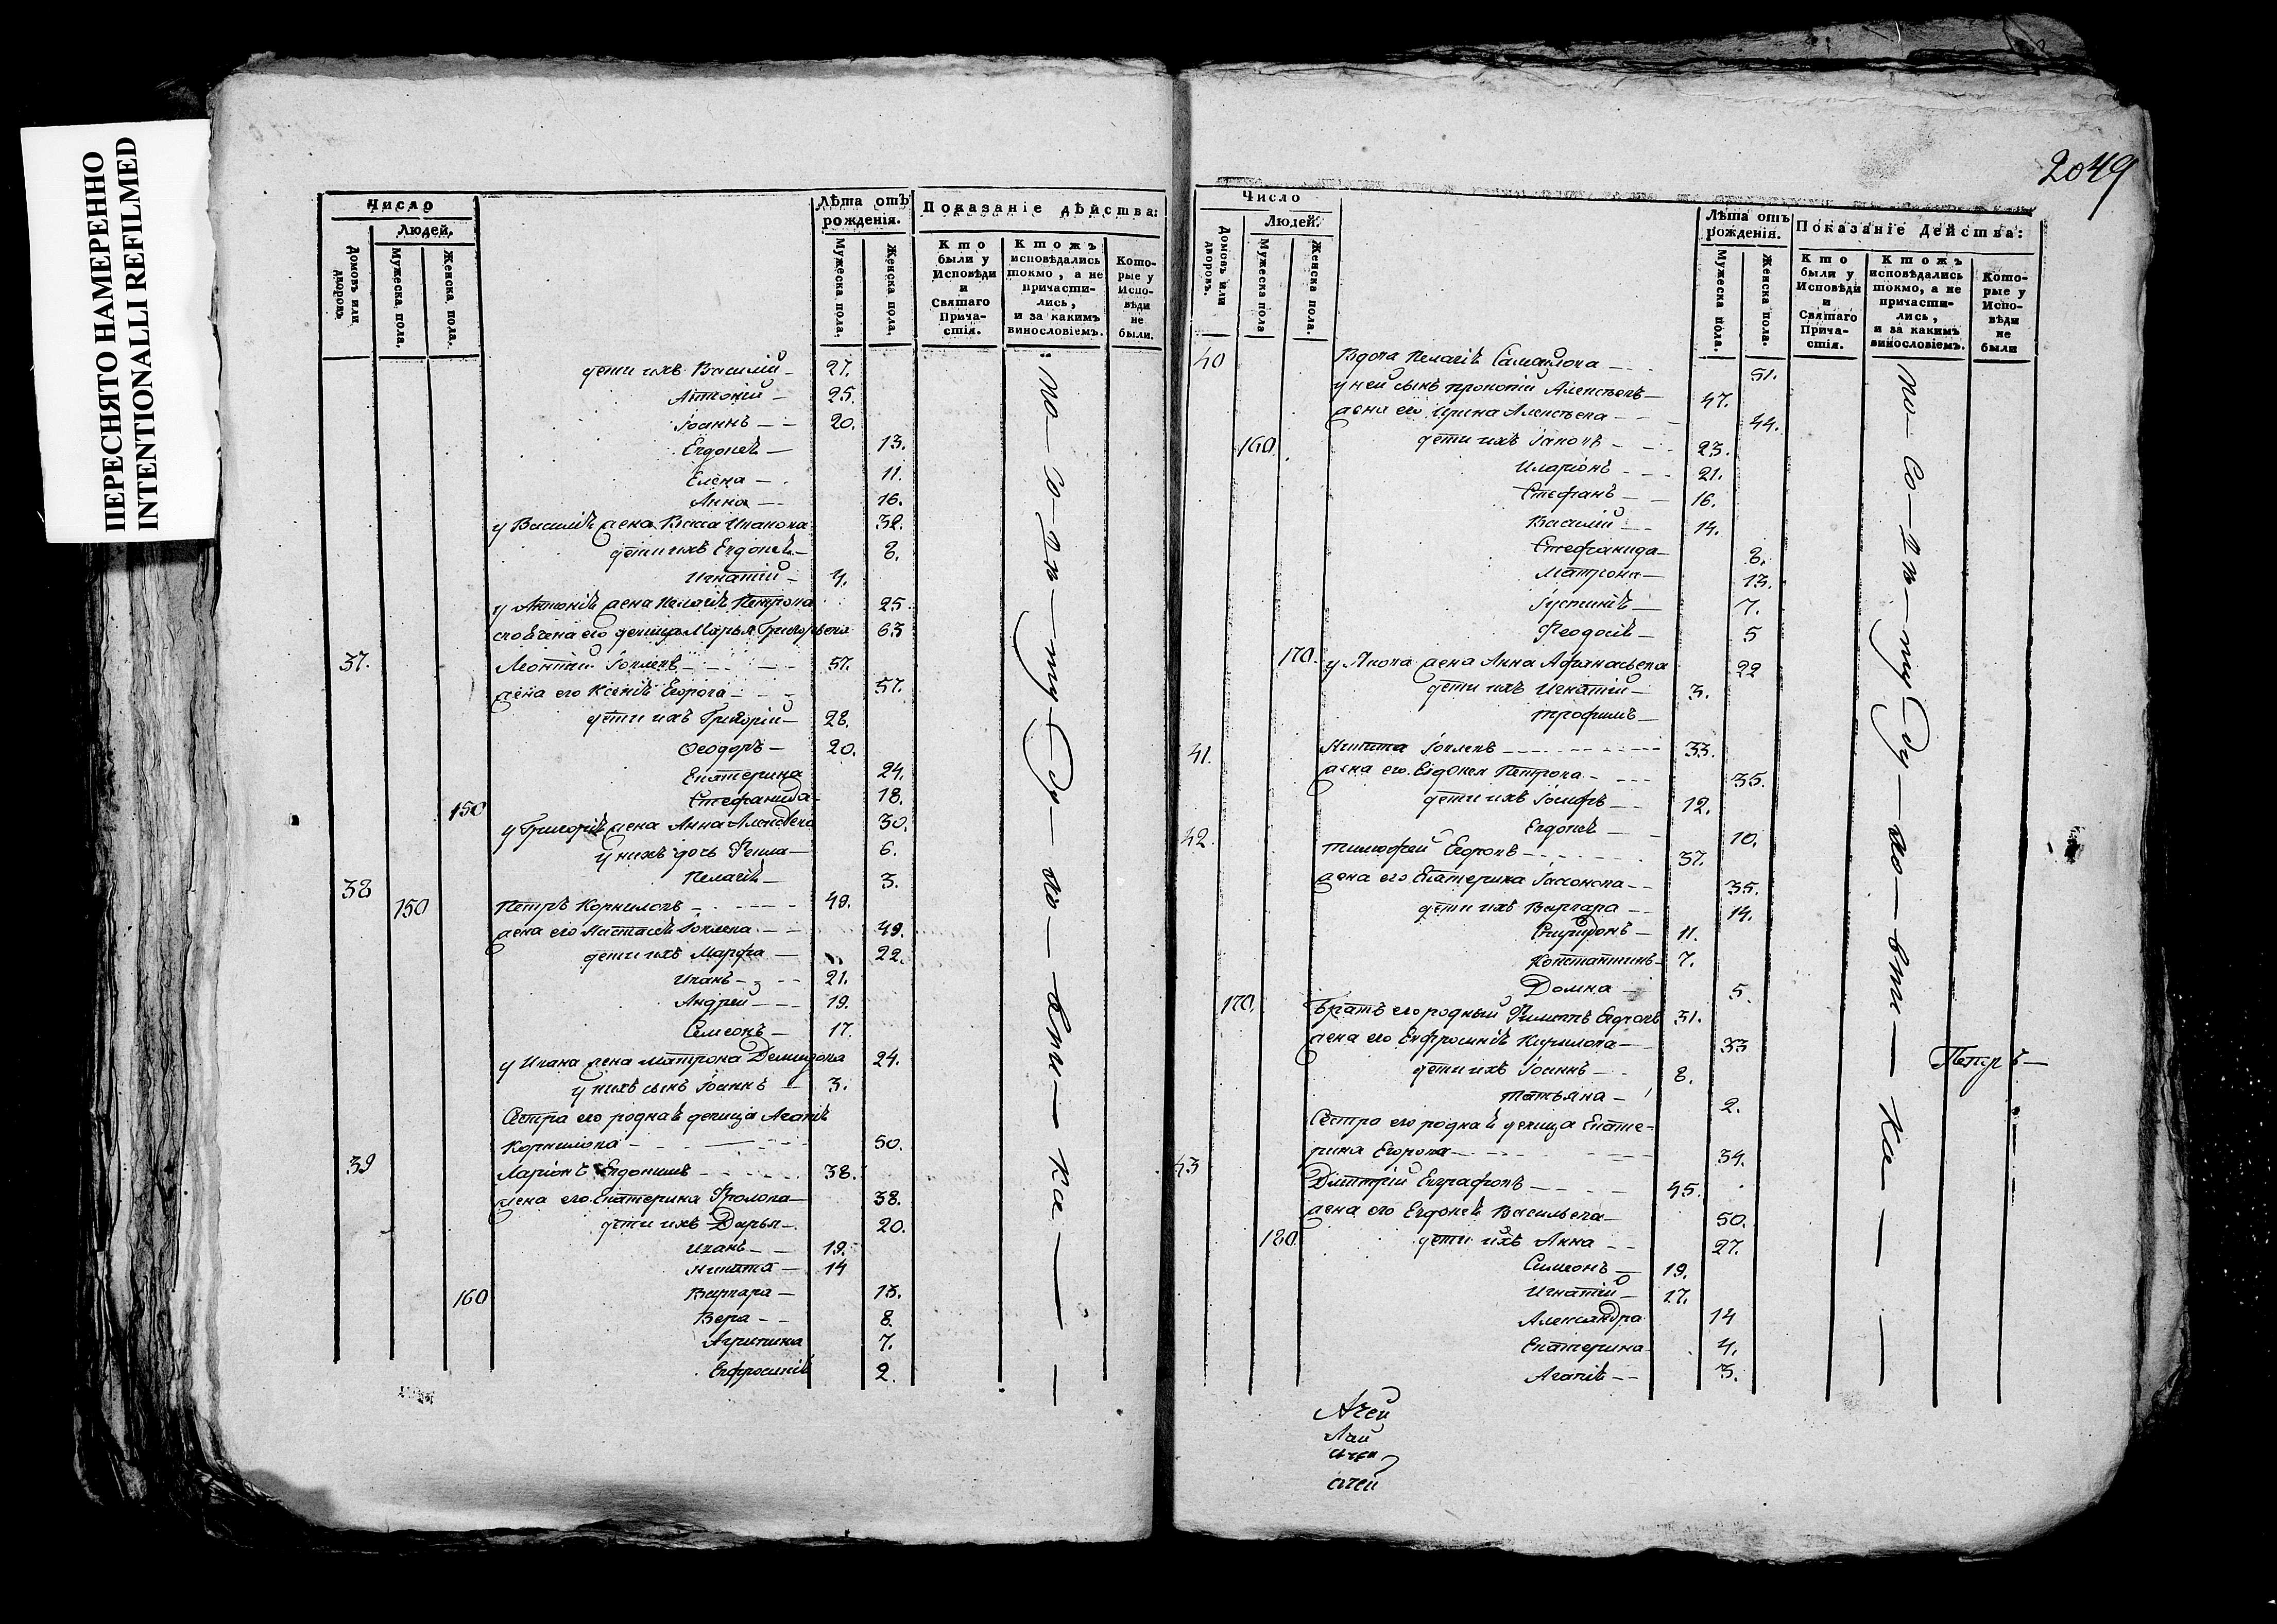 ПЕРЕСНЯТО НАМЕРЕННО
INTENTIONALLI REFILMED
Число
Людей.
Домовъ или дворовъ
Мужеска пола.
Женска пола.
Лѣта отъ рожденія.
Мужеска пола.
Женска пола.
Показаніе дѣйства:
Кто были у Исповѣди и Святаго Прича-стія.
Ктожъ исповѣдались токмо, а не причасти-лись, и за какимъ винословіемъ.
Кото-рые у Испо-вѣди не были.
дети ихъ Василій 27.
Антоній 25.
Іоаннъ 20.
Евдокеѣ 13.
Елена 11.
Анна 16.
у Василіѣ жена Васса Иванова 32.
дети ихъ Евдокеѣ 8.
Игнатій 4.
у Антоніѣ жена Пелагіѣ Петрова 25
его девица Марья Григорьева 63
37. Леонтий Іовлевъ 57.
жена его Ксеніѣ Егорова 57.
дети ихъ Григорій 28.
Ѳеодоръ 20.
Екатерина 24.
150 Стефанида 18.
у Григоріѣ жена Анна Алексѣева 30.
у нихъ дочь Фекла 6.
Пелагіѣ 3.
38 150 Петръ Корниловъ 49.
жена его Настасіѣ Іовлева 49.
дети ихъ Марфа 22.
Иванъ 21.
Андрей 19.
Симеонъ 17.
у Ивана жена Матрона Демидова 24.
у нихъ сынъ Іоаннъ 3.
Сестра его роднаѣ девица Агапіѣ
Корнилова 50.
39 Ларіонъ Евдокимъ 38.
жена его Екатерина Фролова 38.
дети ихъ Дарья 20.
Иванъ 19.
Никита 14
160 Варвара 13.
Вера 8.
Агрипина 7.
Евфросиніѣ 2.
2049
Число
Людей.
Домовъ или дворовъ.
Мужеска пола
Женска пола.
Лѣта отъ рожденія.
Мужеска пола.
Женска пола.
Показаніе Действа:
Кто были у Исповѣди и Святаго Прича-стія.
Ктожъ исповѣдались токмо, а не причасти-лись, и за какимъ винословіемъ.
Кото-рые у Испо-вѣди не были
40 Вдова Пелагіѣ Самайлова 51.
у ней сынъ Прокопій Алексѣевъ 47.
жена его Ирина Алексѣева 44.
160 дети ихъ Іаковъ 23.
Иларіонъ 21.
Стефанъ 16.
Василій 14.
Стефанида 8.
Матрона 13.
Іустиніѣ 7.
Феодосіѣ 5
170. у Якова жена Анна Афанасьева 22
дети ихъ Игнатій 3.
Трофимъ
41. Никита Іовлевъ 33.
жена его Евдокея Петрова 35.
дети ихъ Іосифъ 12.
Евдокеѣ 10.
42. Тимофей Егоровъ 37.
жена его Екатерина Іассонова 35.
дети ихъ Варвара 14.
Спиридонъ 11.
Константинъ 7.
Домна 5.
170. Братъ его родный Филипъ Егоровъ 31.
жена его Евфросиніѣ Кирилова 33
дети ихъ Іоаннъ 8.
Татьяна 2.
Сестра его роднаѣ девица Екате-
рина Егорова 34.
43 Дмитрій Евграфовъ 45.
жена его Евдокеѣ Васильева 50.
180. дети ихъ Анна 27.
Симеонъ 19.
Игнатій 17.
Александра 14
Екатерина 4.
Агапіѣ 3.
Петръ